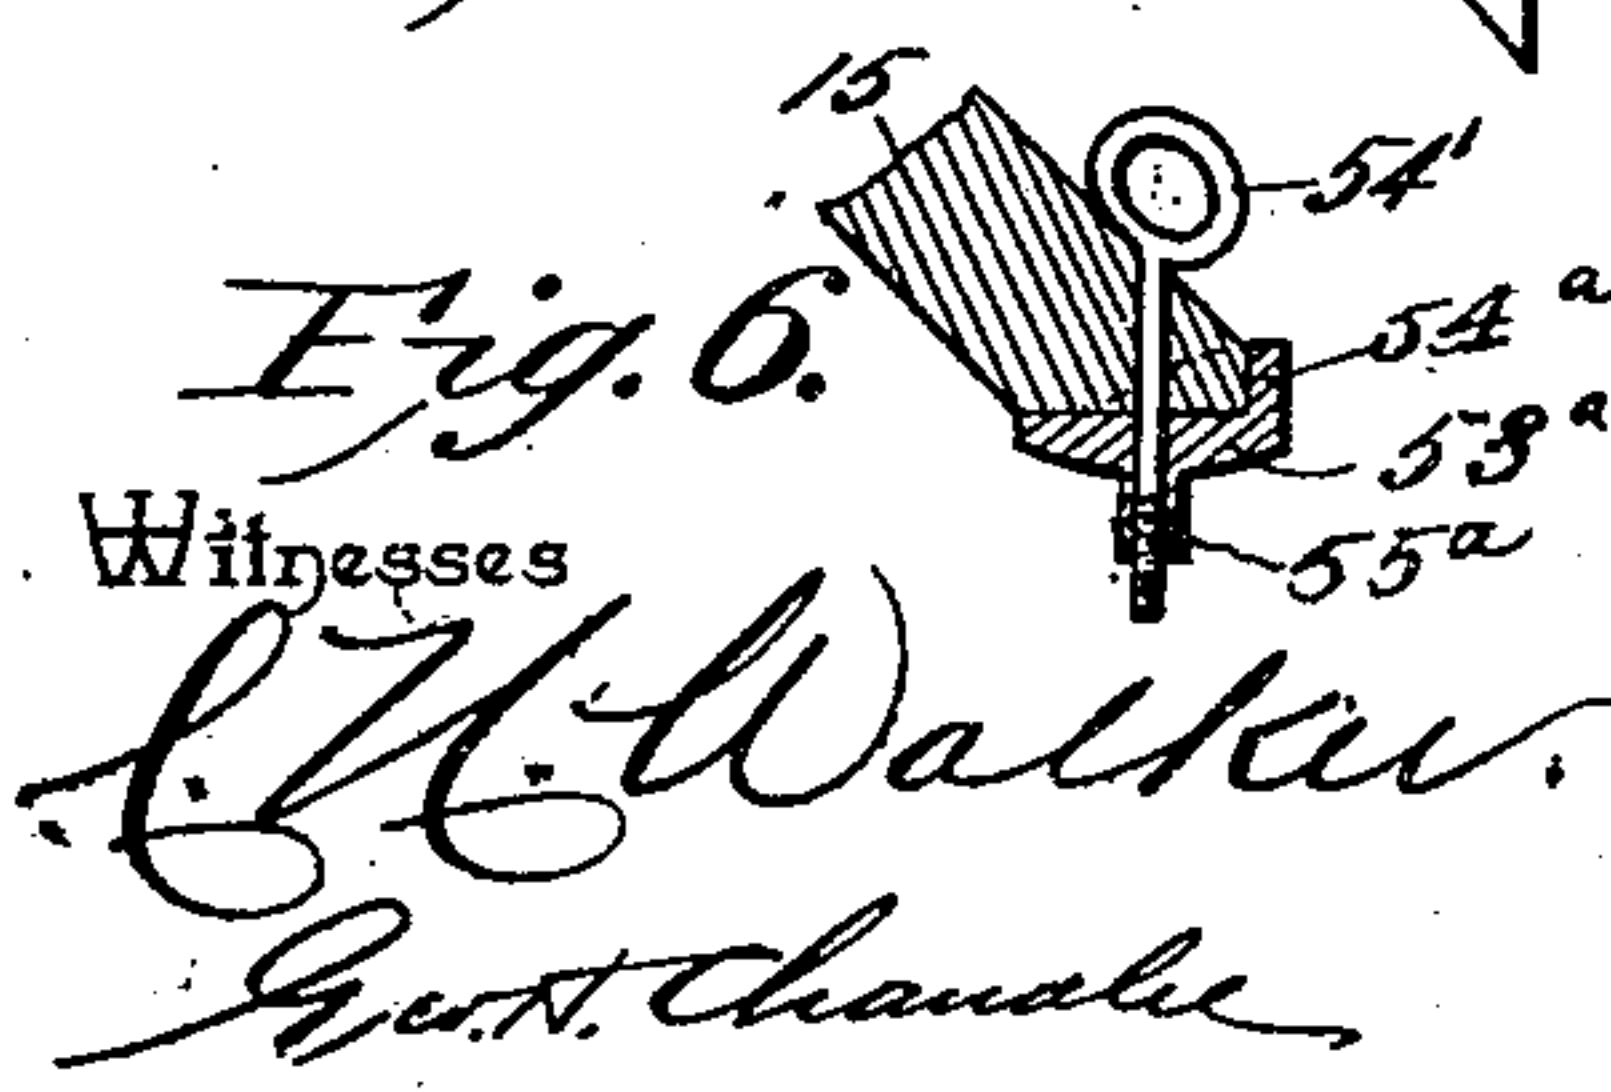 15
54'
54a
Fig. 6.
53a
55a
Witnesses
C. H. Walker.
Geo. H. Chandlee